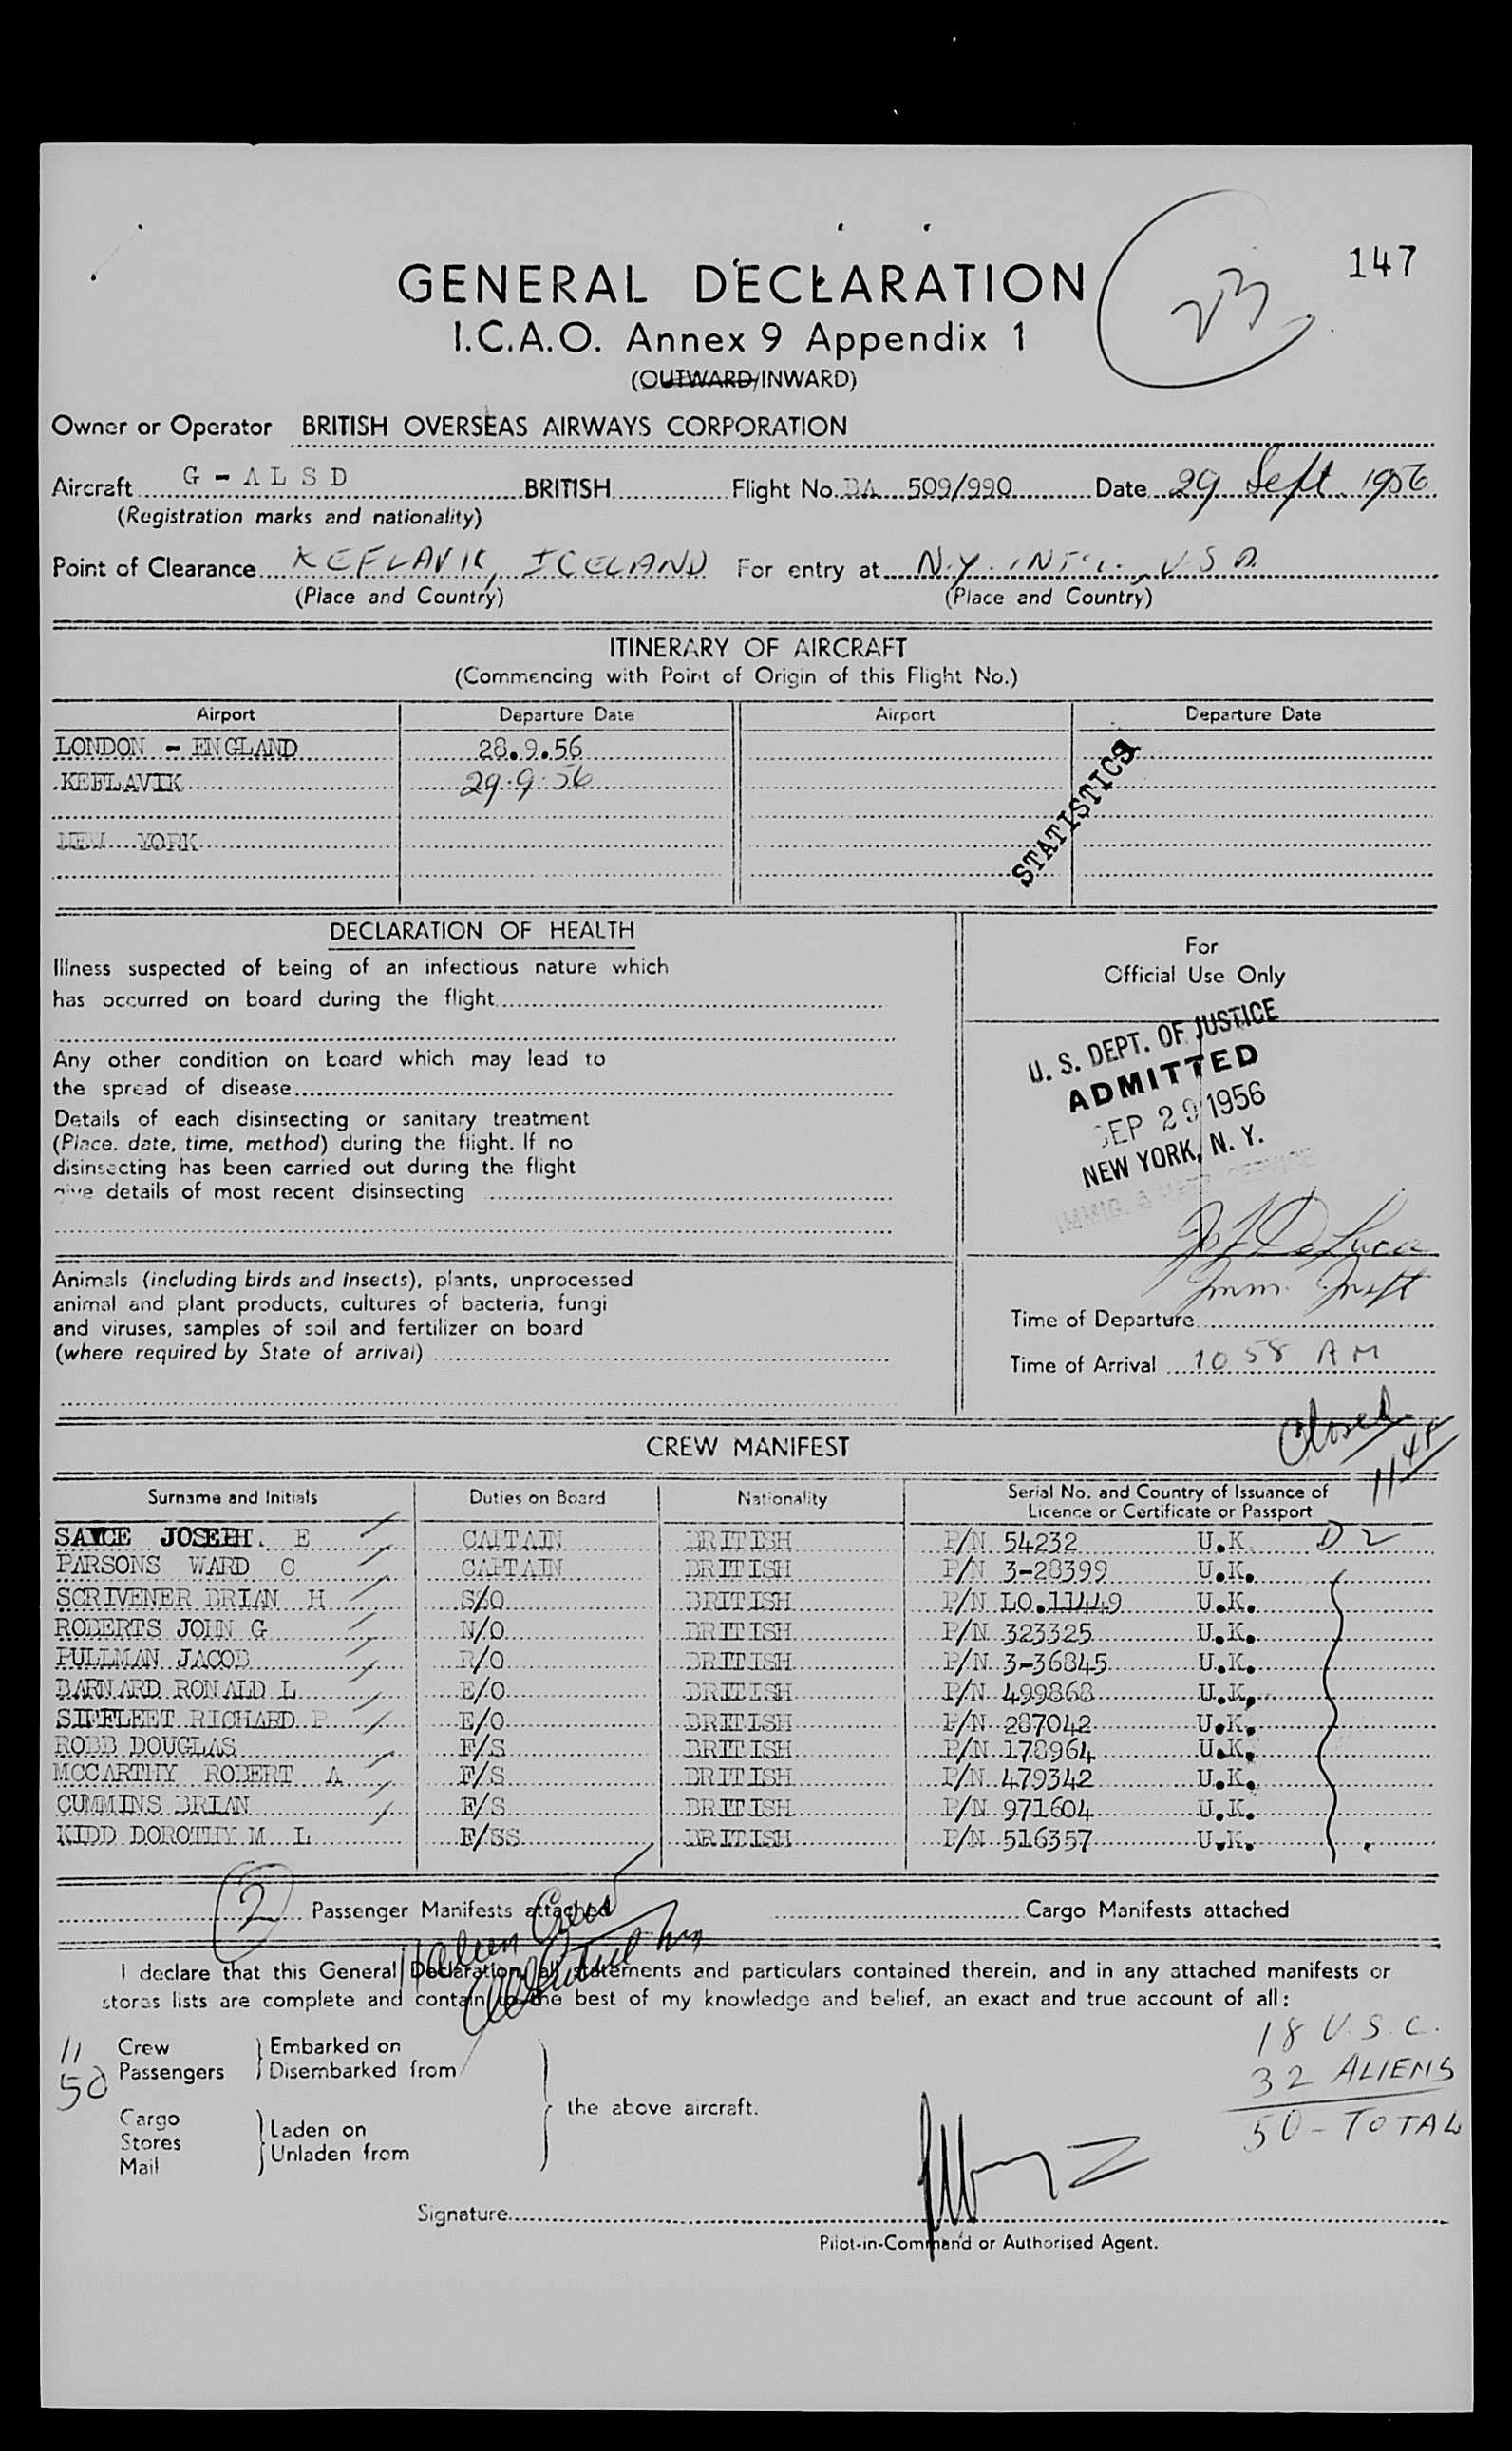 147
23
GENERAL DECLARATION
I.C.A.O. Annex 9 Appendix 1
(OUTWARD/INWARD)
Owner or Operator BRITISH OVERSEAS AIRWAYS CORPORATION
Aircraft G - A L S D BRITISH Flight No. BA 509/990 Date 29 Sept. 1956
(Registration marks and nationality)
Point of Clearance KEFLAVIK, ICELAND For entry at N.Y. INT'L., USA
(Place and Country) (Place and Country)
ITINERARY OF AIRCRAFT
(Commencing with Point of Origin of this Flight No.)
Airport Departure Date Airport Departure Date
LONDON - ENGLAND 28.9.56
KEFLAVIK 29.9.56
NEW YORK
STATISTICS
DECLARATION OF HEALTH
Illness suspected of being of an infectious nature which
has occurred on board during the flight
Any other condition on board which may lead to
the spread of disease
Details of each disinsecting or sanitary treatment
(Place, date, time, method) during the flight. If no
disinsecting has been carried out during the flight
give details of most recent disinsecting
For
Official Use Only
U. S. DEPT. OF JUSTICE
ADMITTED
SEP 29 1956
NEW YORK, N. Y.
IMMIG. & NATZ SERVICE
Jos F De Luca
Imm. Inspt
Animals (including birds and insects), plants, unprocessed
animal and plant products, cultures of bacteria, fungi
and viruses, samples of soil and fertilizer on board
(where required by State of arrival)
Time of Departure
Time of Arrival 10 58 AM
Closed
11 45
CREW MANIFEST
Surname and Initials Duties on Board Nationality Serial No. and Country of Issuance of
Licence or Certificate or Passport
SAYCE JOSEPH. E CAPTAIN BRITISH P/N 54232 U.K. D2
PARSONS WARD C CAPTAIN BRITISH P/N 3-28399 U.K.
SCRIVENER BRIAN H S/O BRITISH P/N LO.11449 U.K.
ROBERTS JOHN G N/O BRITISH P/N 323325 U.K.
PULLMAN JACOB R/O BRITISH P/N 3-36845 U.K.
BARNARD RONALD L E/O BRITISH P/N 499868 U.K.
SIFFLEET RICHARD P E/O BRITISH P/N 287042 U.K.
ROBB DOUGLAS F/S BRITISH P/N 178964 U.K.
MCCARTHY ROBERT A F/S BRITISH P/N 479342 U.K.
CUMMINS BRIAN F/S BRITISH P/N 971604 U.K.
KIDD DOROTHY M L F/SS BRITISH P/N 516357 U.K.
2 Passenger Manifests attached Cargo Manifests attached
11 alien Crew
I declare that this General Declaration, all statements and particulars contained therein, and in any attached manifests or
stores lists are complete and contain to the best of my knowledge and belief, an exact and true account of all:
11 Crew Embarked on
50 Passengers Disembarked from
Cargo
Stores
Mail
Laden on
Unladen from
the above aircraft.
18 U.S.C.
32 ALIENS
50 - TOTAL
Signature
Pilot-in-Command or Authorised Agent.